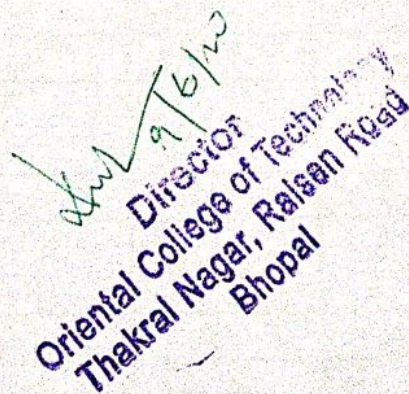 9/6/20
Director
Oriental College of Technology
Thakral Nagar, Raisen Road
Bhopal